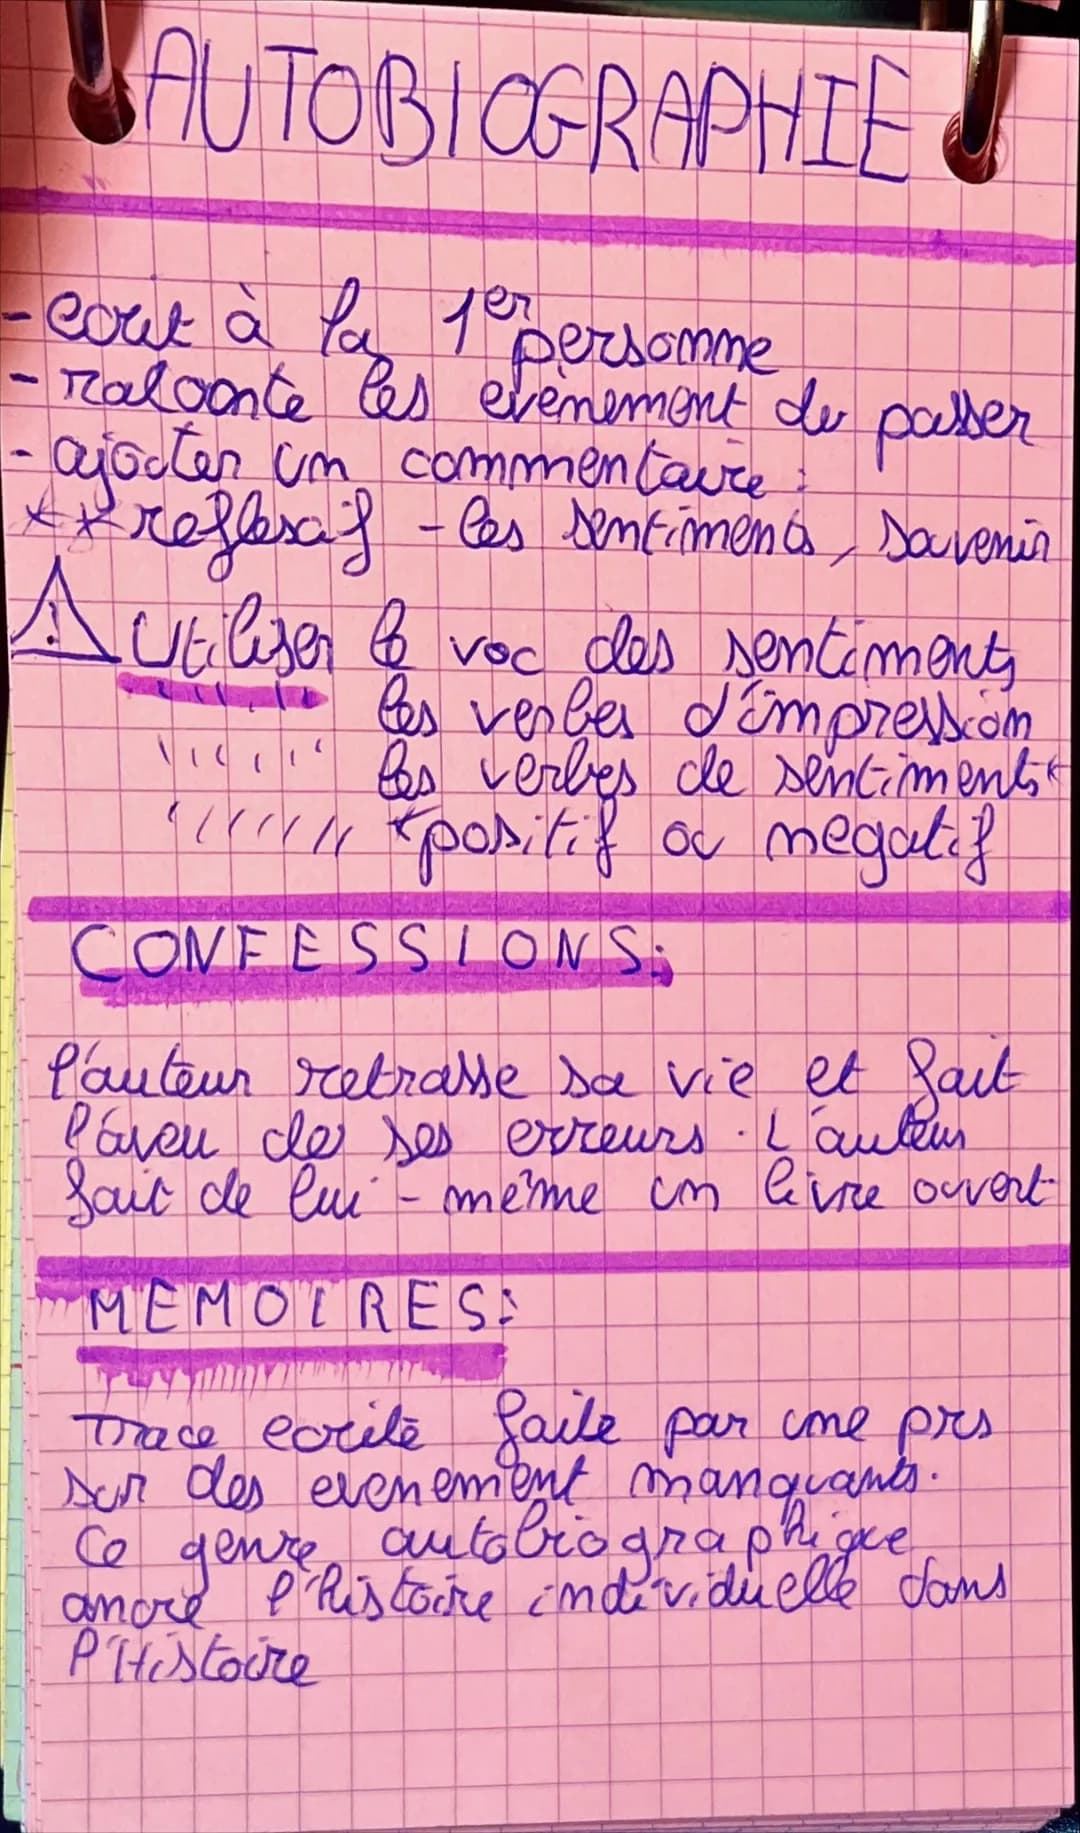 AUTOBIOGRAPHIE
- ecrit à la 1er personne
- raconte les evènement du passer
- ajouter un commentaire :
** reflexif - les sentiments, souvenir
⚠ Utiliser le voc des sentiments
" les verbes d'impression
" les verbes de sentiments*
" *positif ou negatif
CONFESSIONS:
l'auteur retrasse sa vie et fait
l'aveu de ses erreurs. L'auteur
fait de lui-même un livre ouvert
MEMOIRES:
Trace ecrite faite par une prs
sur des evenement manquants.
Ce genre autobiographique
ancre l'histoire individuelle dans
l'Histoire